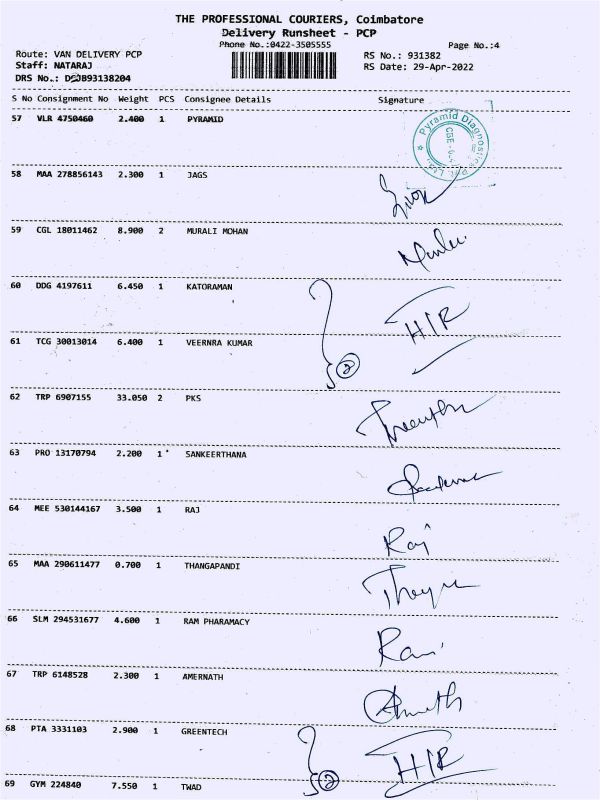 THE PROFESSIONAL COURIERS, Coimbatore
Delivery Runsheet - PCP
Phone No.:0422-3505555
Page No.:4
Route: VAN DELIVERY PCP
RS No.: 931382
Staff: NATARAJ
RS Date: 29-Apr-2022
DRS No.: 893138204
S No Consignment No Weight PCS Consignee Details Signature
57 VLR 4750460 2.400 1 PYRAMID
Pyramid Diagnostics
58 MAA 278856143 2.300 1 JAGS
59 CGL 18011462 8.900 2 MURALI MOHAN
60 DDG 4197611 6.450 1 KATORAMAN
HIR
61 TCG 30013014 6.400 1 VEERNRA KUMAR
2
62 TRP 6907155 33.050 2 PKS
63 PRO 13170794 2.200 1 SANKEERTHANA
64 MEE 530144167 3.500 1 RAJ
Raj
65 MAA 290611477 0.700 1 THANGAPANDI
66 SLM 294531677 4.600 1 RAM PHARAMACY
67 TRP 6148528 2.300 1 AMERNATH
68 PTA 3331103 2.900 1 GREENTECH
HIR
69 GYM 224840 7.550 1 TWAD
2